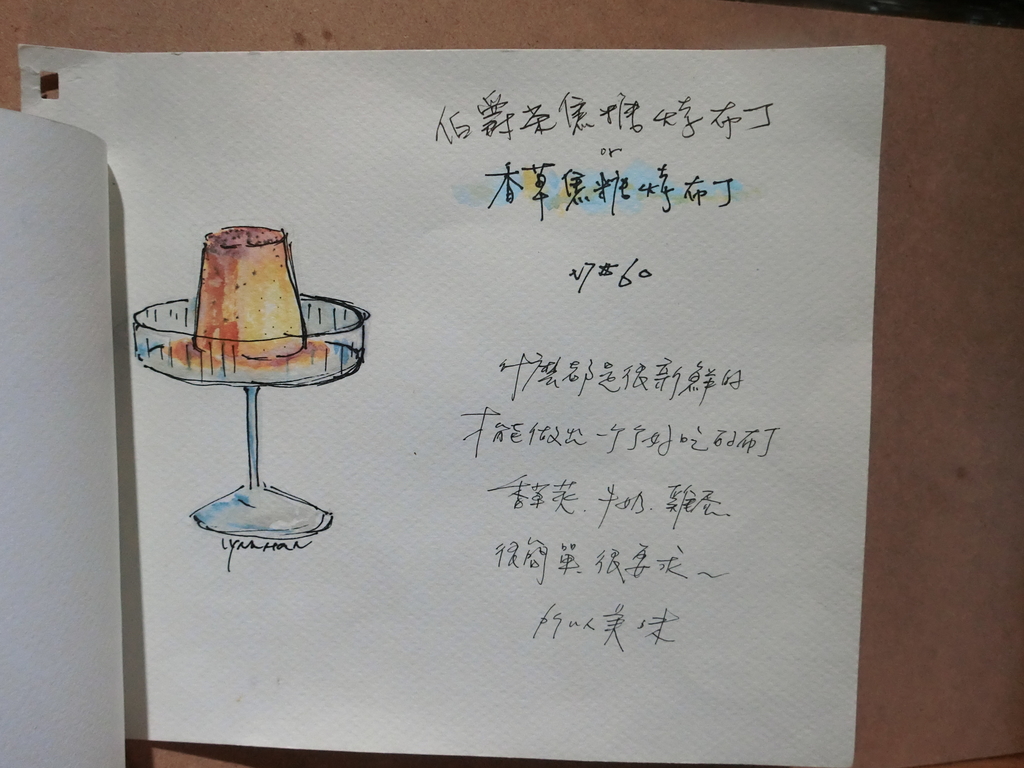 伯爵茶焦糖烤布丁
or
香草焦糖烤布丁
NT$60
什麼都是很新鮮的
才能做出一個好吃的布丁
香草莢.牛奶.雞蛋
很簡單 很要求~
所以美味
lynnHan